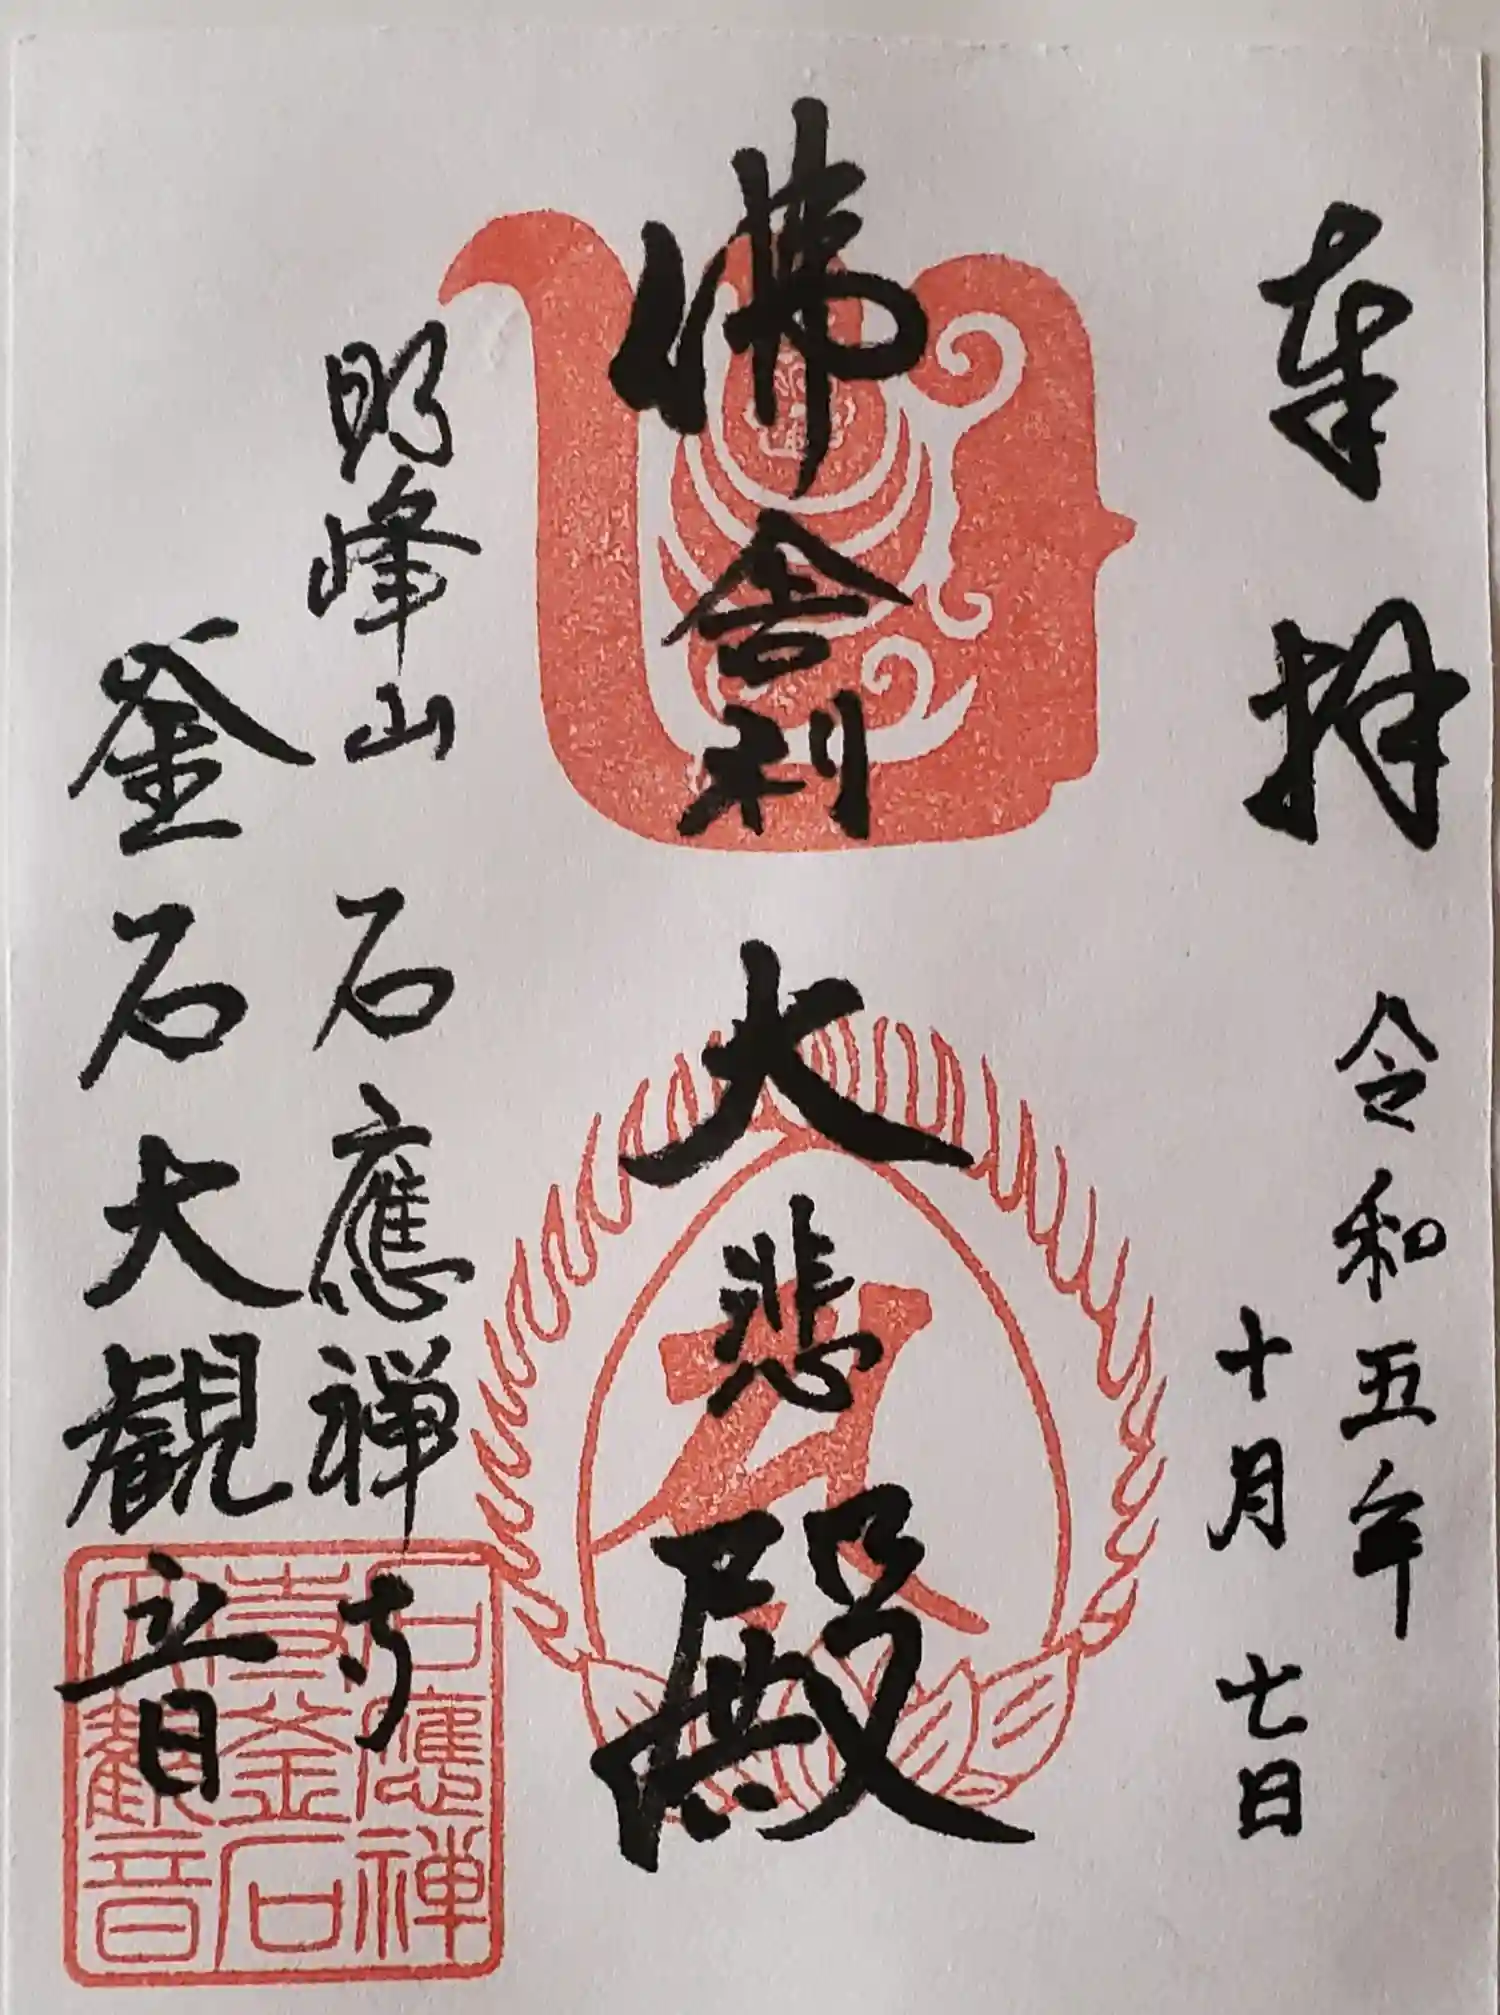 奉拝
令和五年
十月七日
佛舎利
大悲殿
明峰山 石應禅寺
釜石大観音
石應禅
寺釜石
大観音